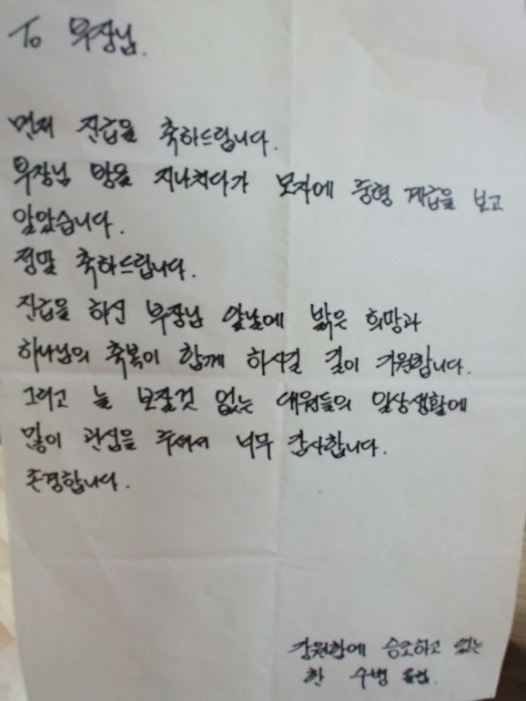 To 부장님.
먼저 진급을 축하드립니다.
부장님 방을 지나치다가 모자에 중령 계급을 보고
알았습니다.
정말 축하드립니다.
진급을 하신 부장님 앞날에 밝은 희망과
하나님의 축복이 함께 하시길 깊이 기원합니다.
그리고 늘 보잘것 없는 대원들의 일상생활에
많이 관심을 주셔서 너무 감사합니다.
존경합니다.
강원함에 승조하고 있는
한 수병